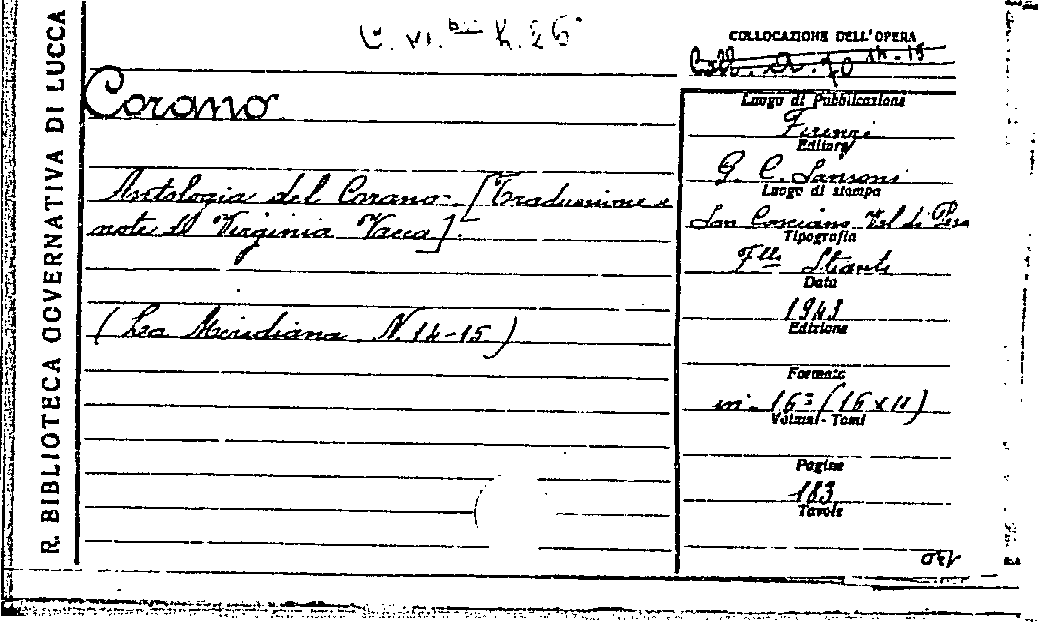 R. BIBLIOTECA GOVERNATIVA DI LUCCA
C. VI. bis h. 26
COLLOCAZIONE DELL'OPERA
Coll. A. 70 14-15
Corano
Antologia del Corano - [Traduzione e
note di Virginia Vacca].
(La Meridiana N. 14-15)
Luogo di Pubblicazione
Firenze
Editore
G. C. Sansoni
Luogo di stampa
San Casciano Val di Pesa
Tipografia
F.lli Stianti
Data
1943
Edizione
Formato
in-16° (16 x 11)
Volumi - Tomi
Pagine
183
Tavole